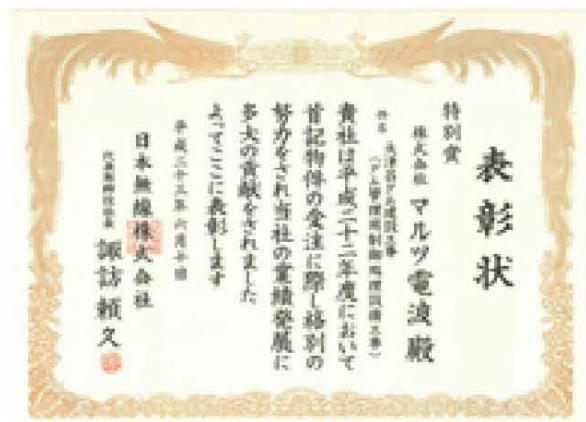 表彰状
特別賞
株式会社 マルツ電波 殿
件名
(ダム管理用制御処理設備工事)
貴社は平成二十二年度において
首記物件の受注に際し格別の
努力をされ当社の業績発展に
多大の貢献をされました
よってここに表彰します
平成二十三年 六月 十日
日本無線株式会社
代表取締役社長
諏訪頼久